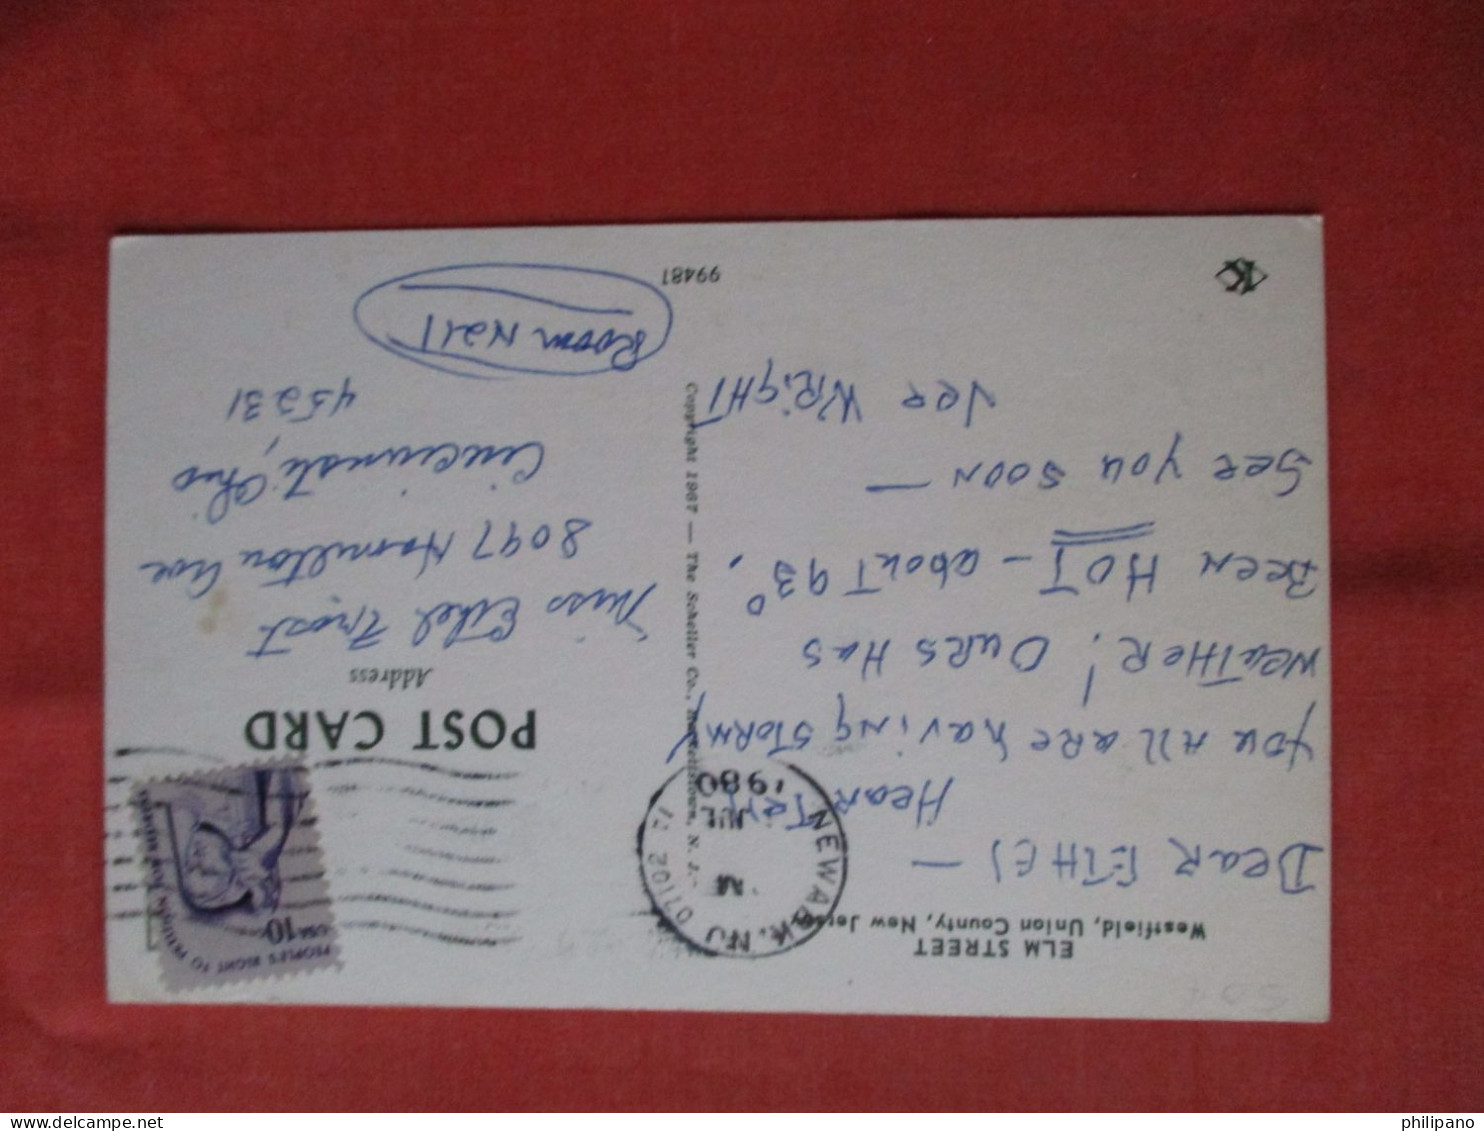 ELM STREET
Westfield, Union County, New Jersey
DEAR ETHEL —
HEAR TELL
YOU ALL ARE having STORMY
WEATHER! OURS HAS
BEEN HOT - about 93°.
SEE YOU SOON —
WRIGHT
K
99481
Copyright 1967 — The Scheller Co., Hackettstown, N. J.
NEWARK, NJ 07102
JUL
1980
PEOPLE'S RIGHT TO PETITION FOR REDRESS
USA 10
POST CARD
Address
Miss Ethel Frost
8097 Hamilton Ave
Cincinnati, Ohio
45231
Room N211
philipano